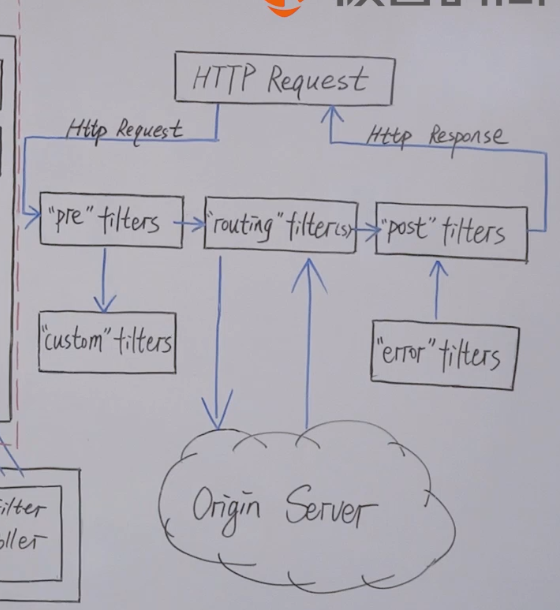 HTTP Request
Http Request
Http Response
"pre" filters
"routing" filter(s)
"post" filters
"custom" filters
"error" filters
Origin Server